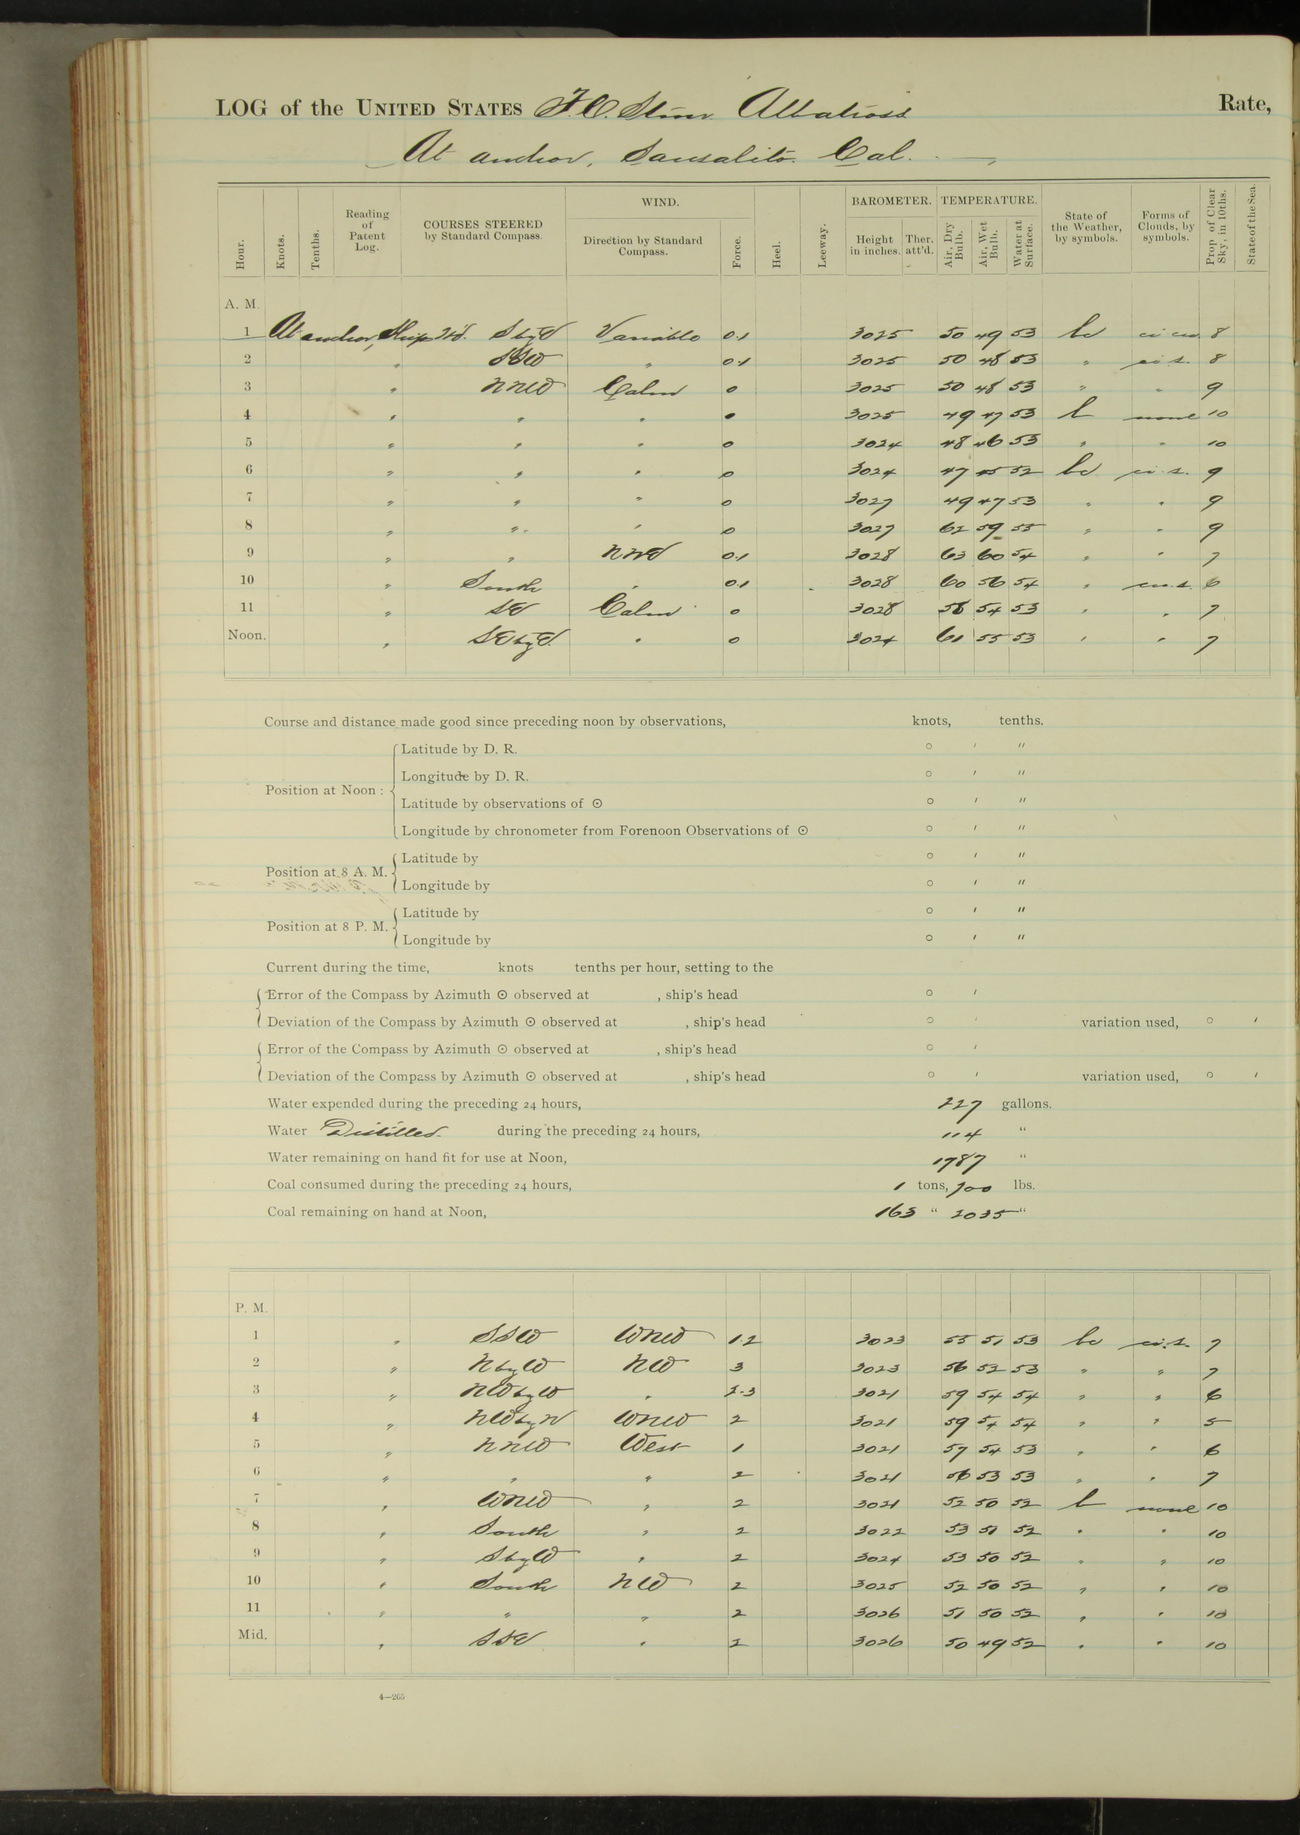 LOG of the UNITED STATES F.C. Stmr Albatross Rate,
At anchor, Sausalito. Cal.
Hour. Knots. Tenths. Reading of Patent Log. COURSES STEERED by Standard Compass. WIND. Direction by Standard Compass. Force. Heel. Leeway. BAROMETER. Height in inches. Ther. att'd. TEMPERATURE. Air, Dry Bulb. Air, Wet Bulb. Water at Surface. State of the Weather, by symbols. Forms of Clouds, by symbols. Prop. of Clear Sky, in 10ths. State of the Sea.
A. M.
1 At anchor, Ship Hd. SbyE Variable 0.1 3025 50 49 53 bc ci cu. 8
2 " SSW " 0.1 3025 50 48 53 " ci s. 8
3 " NNW Calm 0 3025 50 48 53 " " 9
4 " " " 0 3025 49 47 53 b none 10
5 " " " 0 3024 48 46 53 " " 10
6 " " " 0 3024 47 45 52 bc ci. s. 9
7 " " " 0 3027 49 47 53 " " 9
8 " " " 0 3027 62 59 55 " " 9
9 " " NNE 0.1 3028 63 60 54 " " 7
10 " South " 0.1 3028 60 56 54 " cu. s. 6
11 " SE Calm 0 3028 58 54 53 " " 7
Noon. " SEbyE. " 0 3024 61 55 53 " " 7
Course and distance made good since preceding noon by observations, knots, tenths.
Position at Noon :
Latitude by D. R. ° ′ ″
Longitude by D. R. ° ′ ″
Latitude by observations of ☉ ° ′ ″
Longitude by chronometer from Forenoon Observations of ☉ ° ′ ″
Position at 8 A. M.
Latitude by ° ′ ″
Longitude by ° ′ ″
Position at 8 P. M.
Latitude by ° ′ ″
Longitude by ° ′ ″
Current during the time, knots tenths per hour, setting to the
Error of the Compass by Azimuth ☉ observed at , ship's head ° ′
Deviation of the Compass by Azimuth ☉ observed at , ship's head ° ′ variation used, ° ′
Error of the Compass by Azimuth ☉ observed at , ship's head ° ′
Deviation of the Compass by Azimuth ☉ observed at , ship's head ° ′ variation used, ° ′
Water expended during the preceding 24 hours, 227 gallons.
Water Distilled during the preceding 24 hours, 114 "
Water remaining on hand fit for use at Noon, 1787 "
Coal consumed during the preceding 24 hours, 1 tons, 700 lbs.
Coal remaining on hand at Noon, 163 " 2035 "
P. M.
1 " SSW WNW 1.2 3023 55 51 53 bc ci. s. 7
2 " NbyW NW 3 3023 56 52 53 " " 7
3 " NWbyW " 2.3 3021 59 54 54 " " 6
4 " NWbyN WNW 2 3021 59 54 54 " " 5
5 " NNW West 1 3021 57 54 53 " " 6
6 " " " 2 3021 56 53 53 " " 7
7 " WNW " 2 3021 52 50 52 b none 10
8 " South " 2 3022 53 51 52 " " 10
9 " SbyW " 2 3024 53 50 52 " " 10
10 " South NW 2 3025 52 50 52 " " 10
11 " " " 2 3026 51 50 52 " " 10
Mid. " SSE " 2 3026 50 49 52 " " 10
4—265